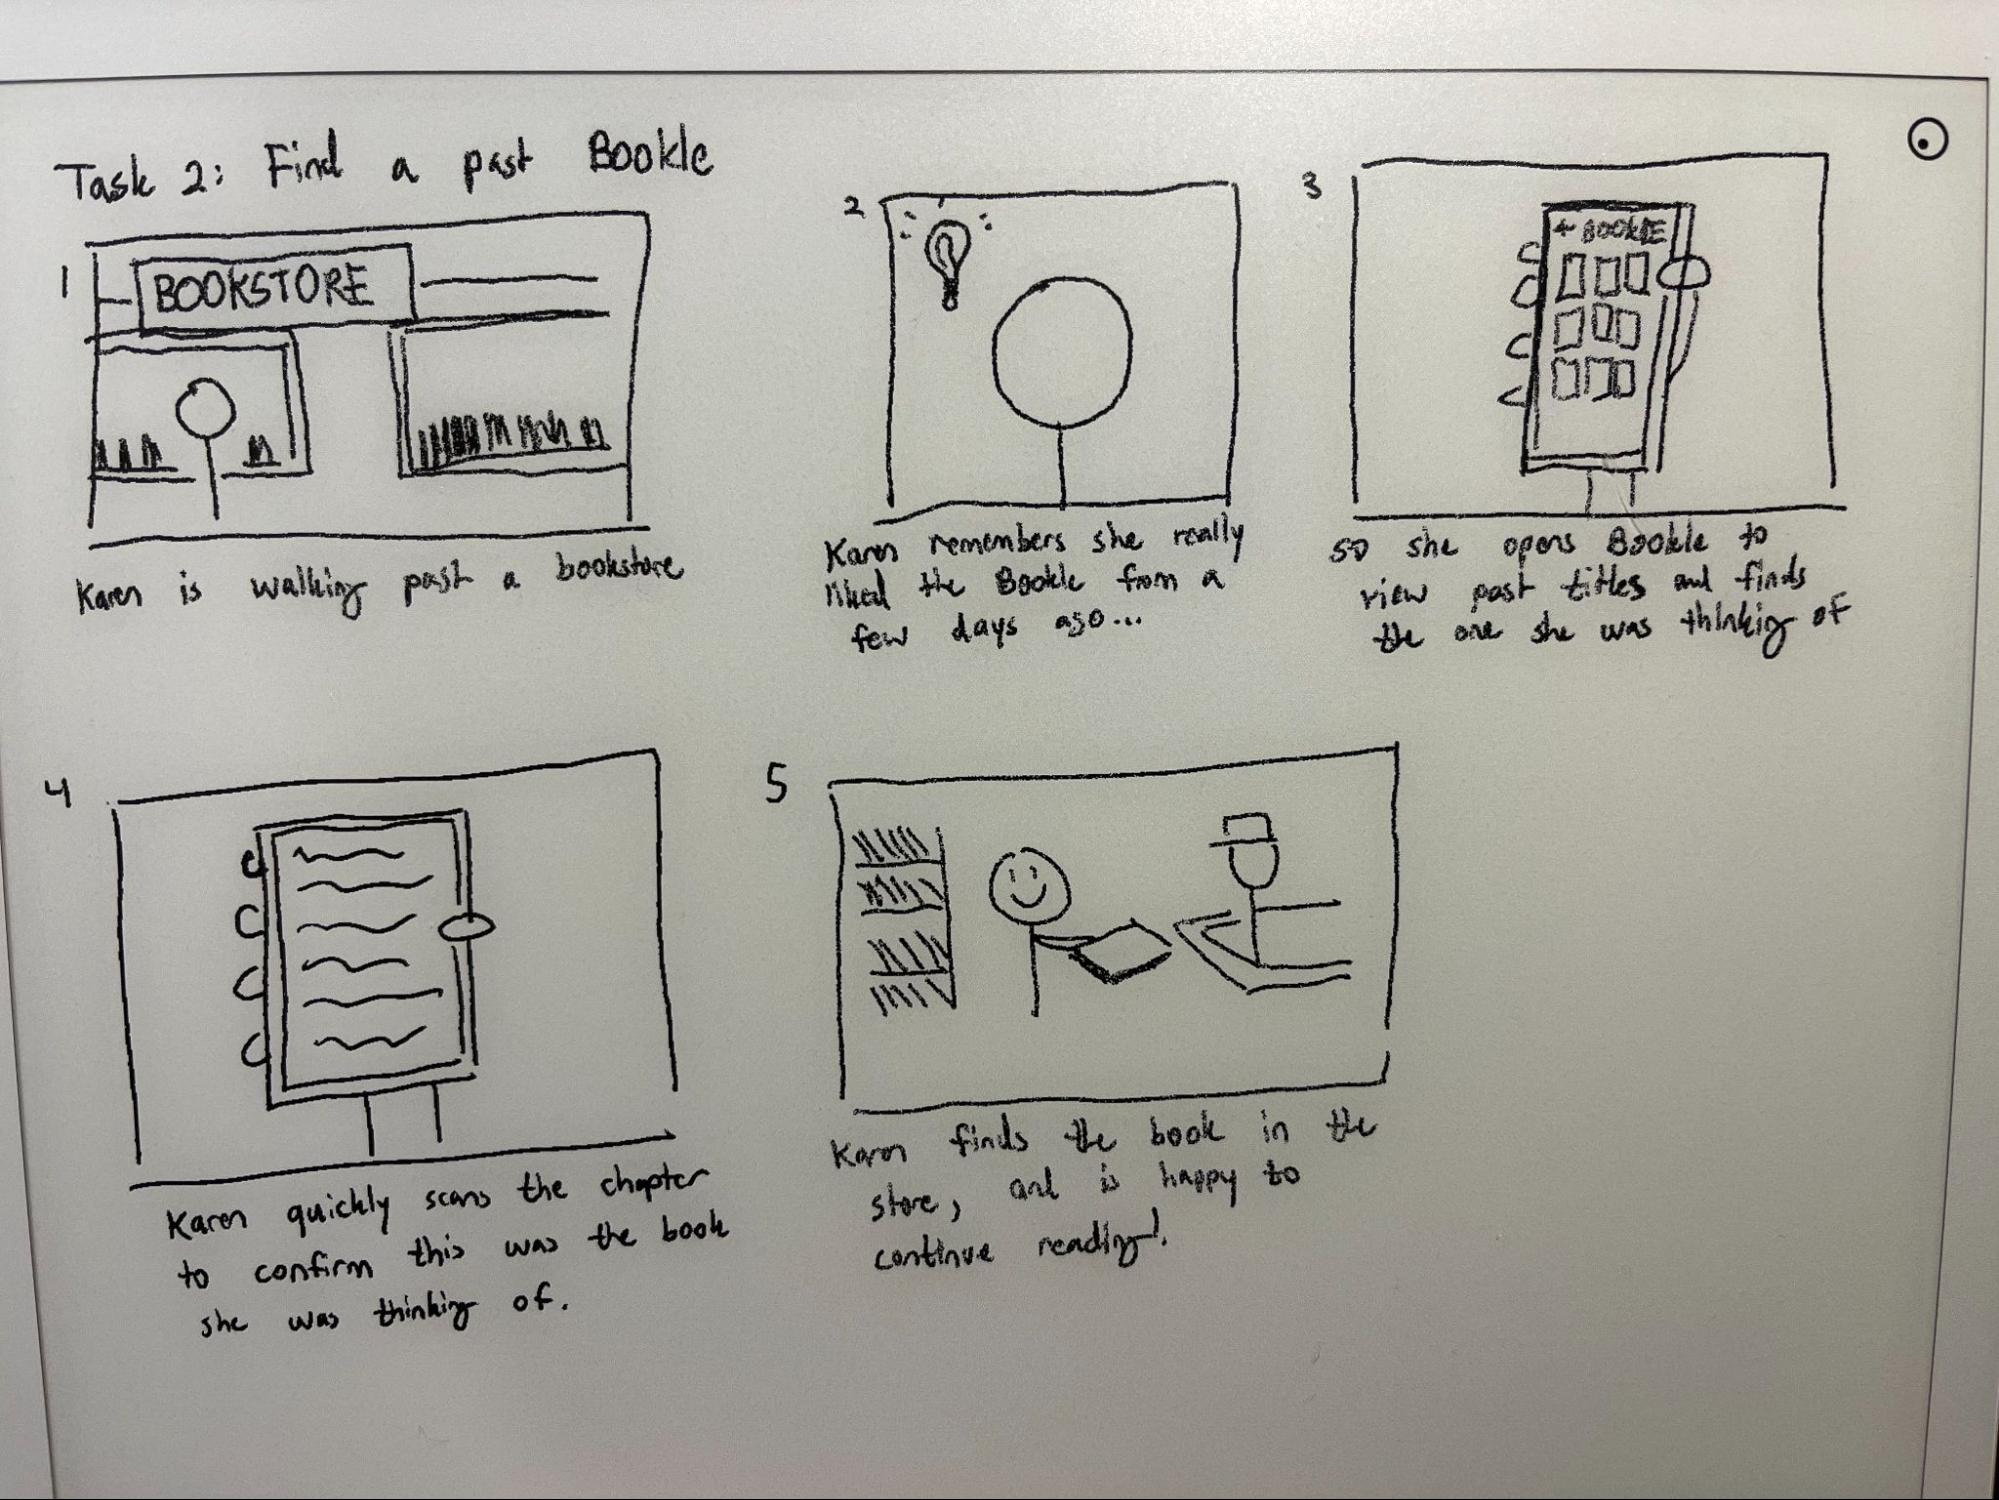 Task 2: Find a past Bookle
1
BOOKSTORE
Karen is walking past a bookstore
2
Karen remembers she really
liked the Bookle from a
few days ago...
3
← BOOKLE
so she opens Bookle to
view past titles and finds
the one she was thinking of
4
Karen quickly scans the chapter
to confirm this was the book
she was thinking of.
5
Karen finds the book in the
store, and is happy to
continue reading!